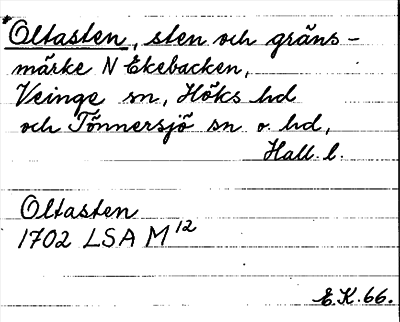 Oltasten, sten och gräns-
märke N Ekebacken,
Veinge sn, Höks hd
och Tönnersjö sn o. hd,
Hall. l.
Oltasten
1702 LSA M 12
E.K. 66.